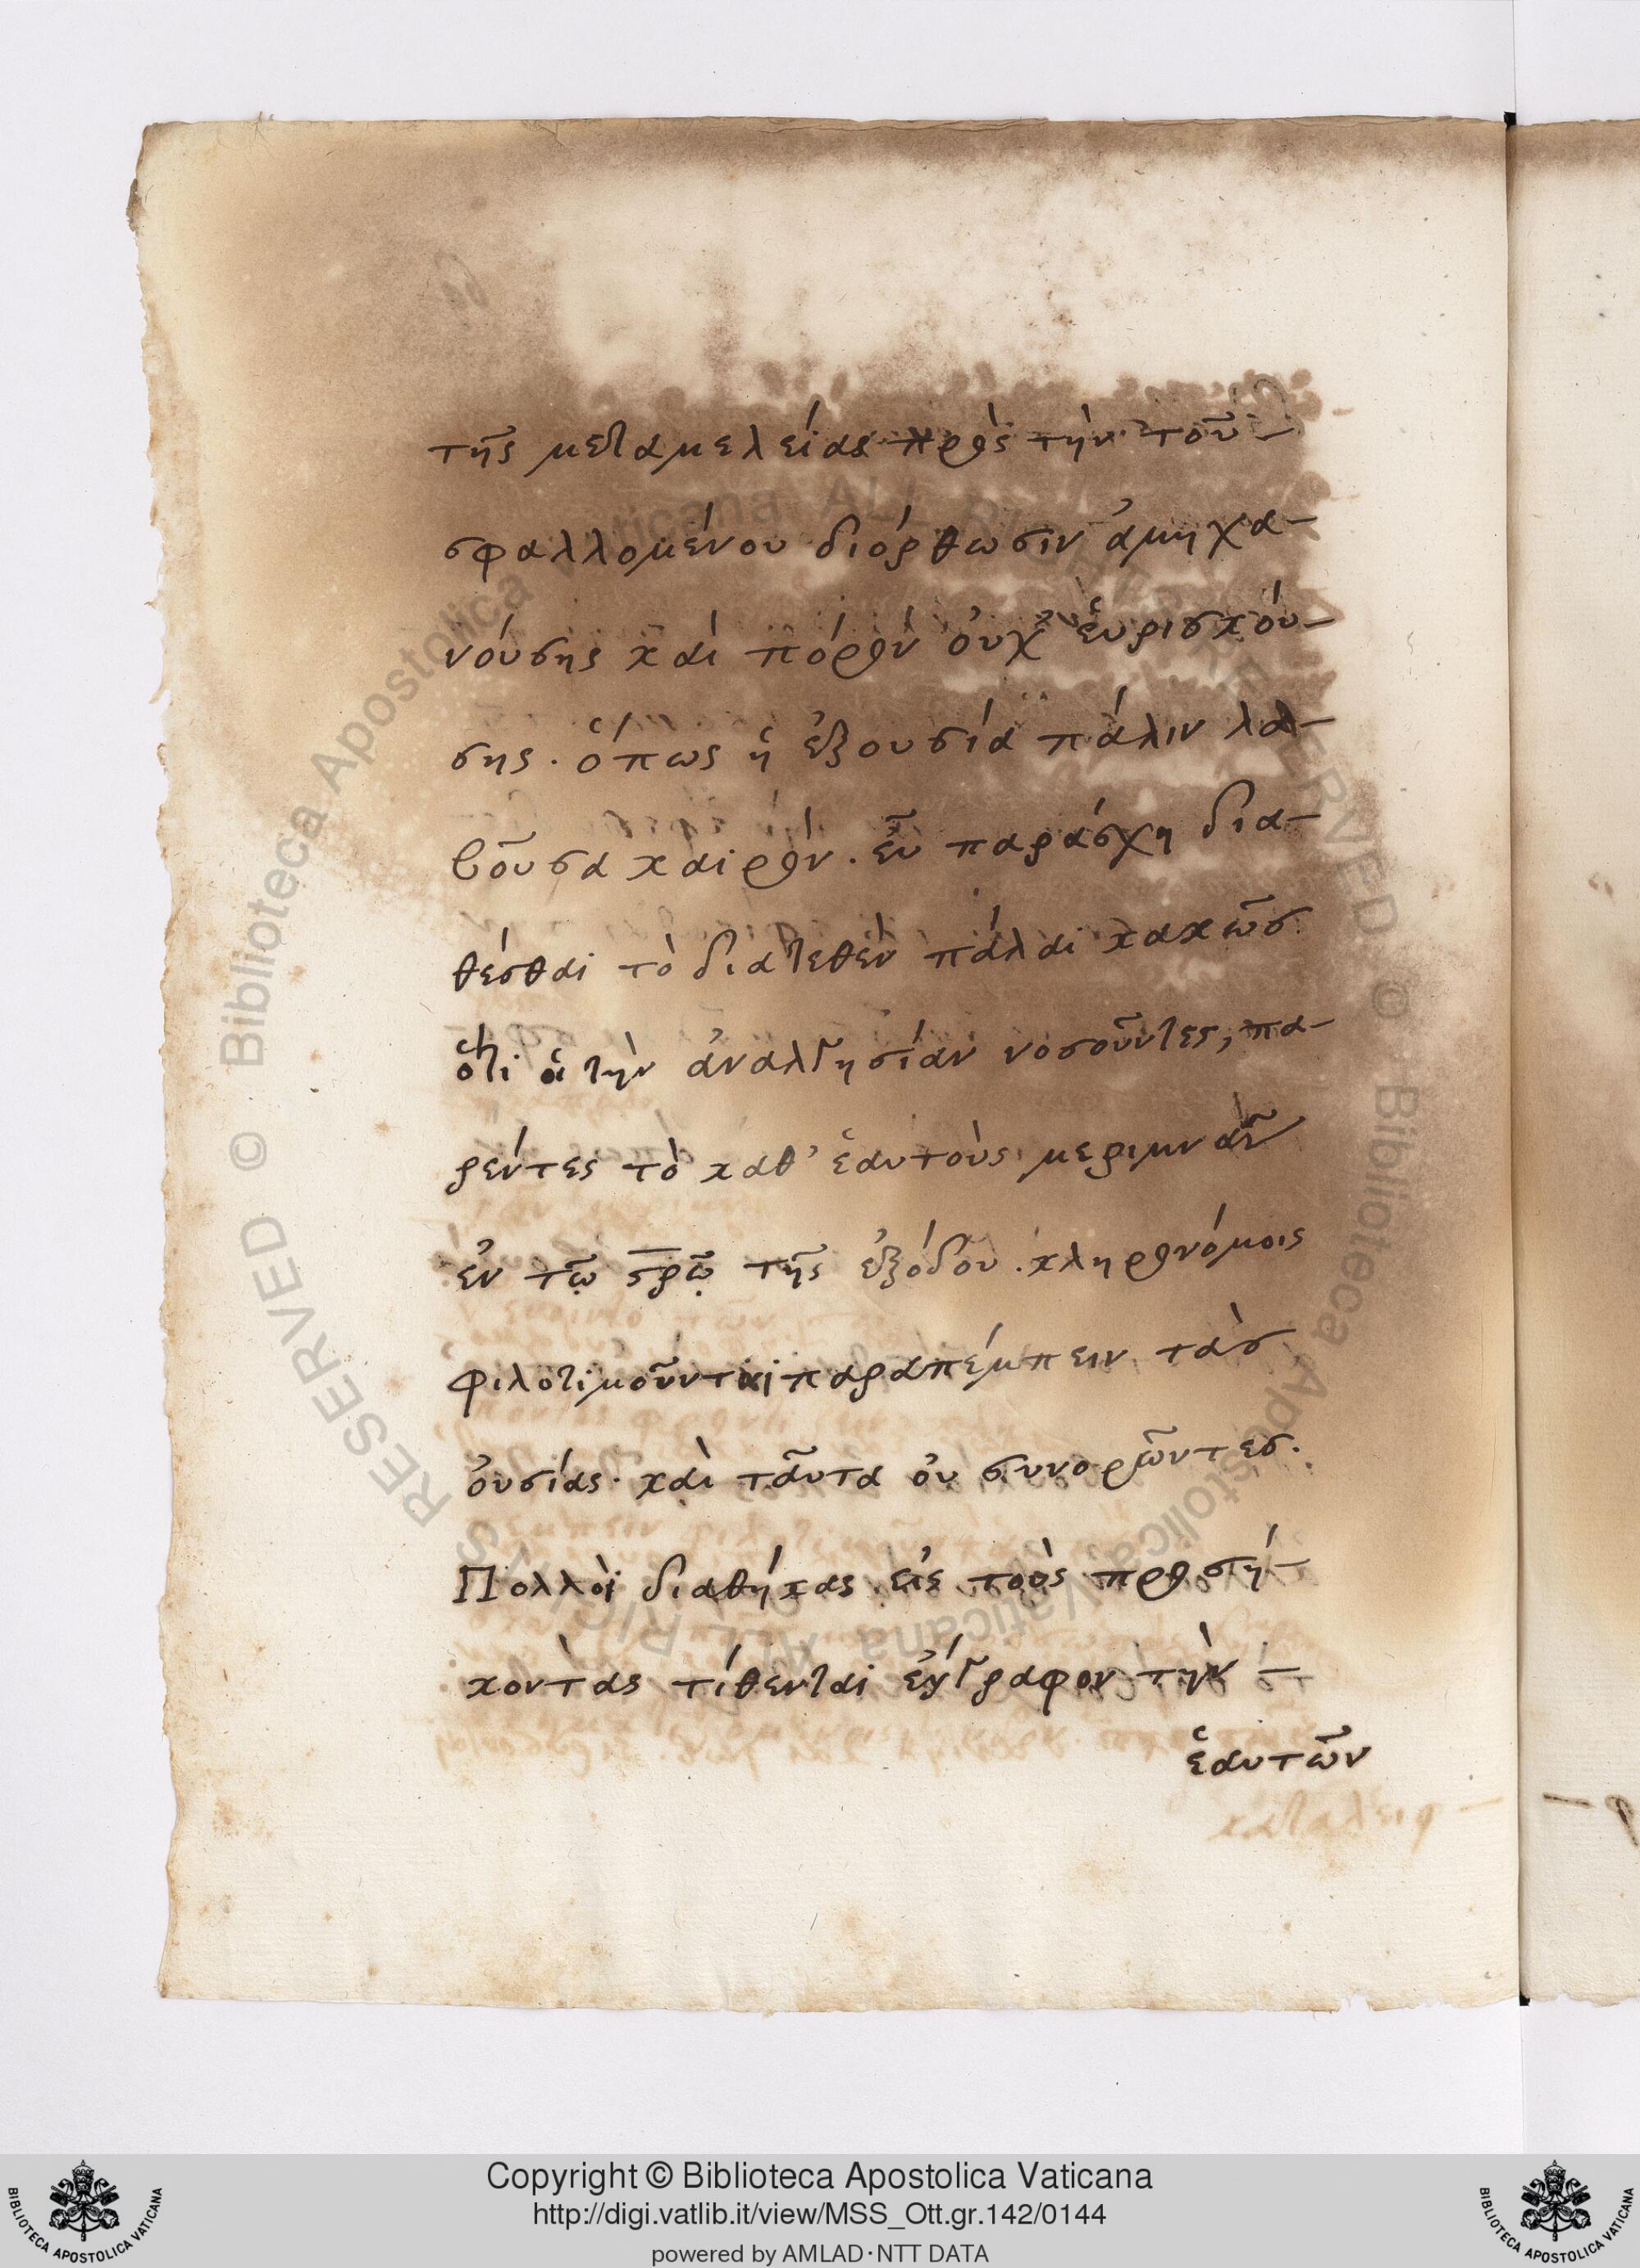 τῆς μεταμελείας πρὸς τὴν τοῦ –
σφαλλομένου διόρθωσιν ἀμηχα–
νούσης καὶ πόρον οὐχ εὑρισκού–
σης. ὅπως ἡ ἐξουσία πάλιν λα–
βοῦσα καιρὸν. εὖ παράσχη δια–
θέσθαι τὸ διατεθὲν πάλαι κακῶς.
ὅτι οἱ τὴν ἀναλγησίαν νοσοῦντες, πα–
ρέντες τὸ καθ' ἑαυτοὺς μεριμνᾶν
ἐν τῷ σρῷ τῆς ἐξόδου. κληρονόμοις
φιλοτιμοῦνται παραπέμπειν τὰς
οὐσίας. καὶ ταῦτα οὐ συνορῶντες.
Πολλοὶ διαθήκας εἰς τοὺς προσή–
κοντας τίθενται ἔγγραφον τὴν –
ἑαυτῶν
Copyright © Biblioteca Apostolica Vaticana
http://digi.vatlib.it/view/MSS_Ott.gr.142/0144
powered by AMLAD·NTT DATA
BIBLIOTECA APOSTOLICA VATICANA
BIBLIOTECA APOSTOLICA VATICANA
© Biblioteca Apostolica Vaticana ALL RIGHTS RESERVED © Biblioteca Apostolica Vaticana ALL RIGHTS RESERVED